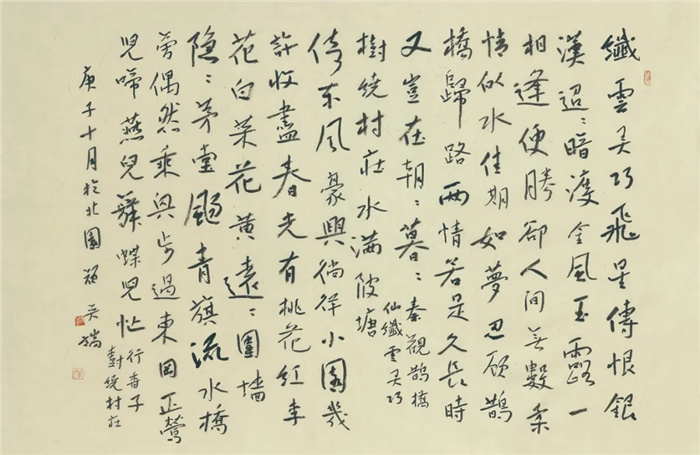 纖雲弄巧飛星傳恨銀
漢迢:暗渡金風玉露一
相逢便勝卻人間無數柔
情似水佳期如夢忍顧鵲
橋歸路兩情若是久長時
又豈在朝:暮:秦觀鵲橋
仙纖雲弄巧
樹繞村莊水滿陂塘
倚東風豪興徜徉小園幾
許收盡春光有桃花紅李
花白菜花黃遠:圍墻
隐:茅堂颺青旗流水橋
旁偶然乘興步過東岡正鶯
兒啼燕兒舞蝶兒忙行香子
樹繞村莊
庚子十月於北園